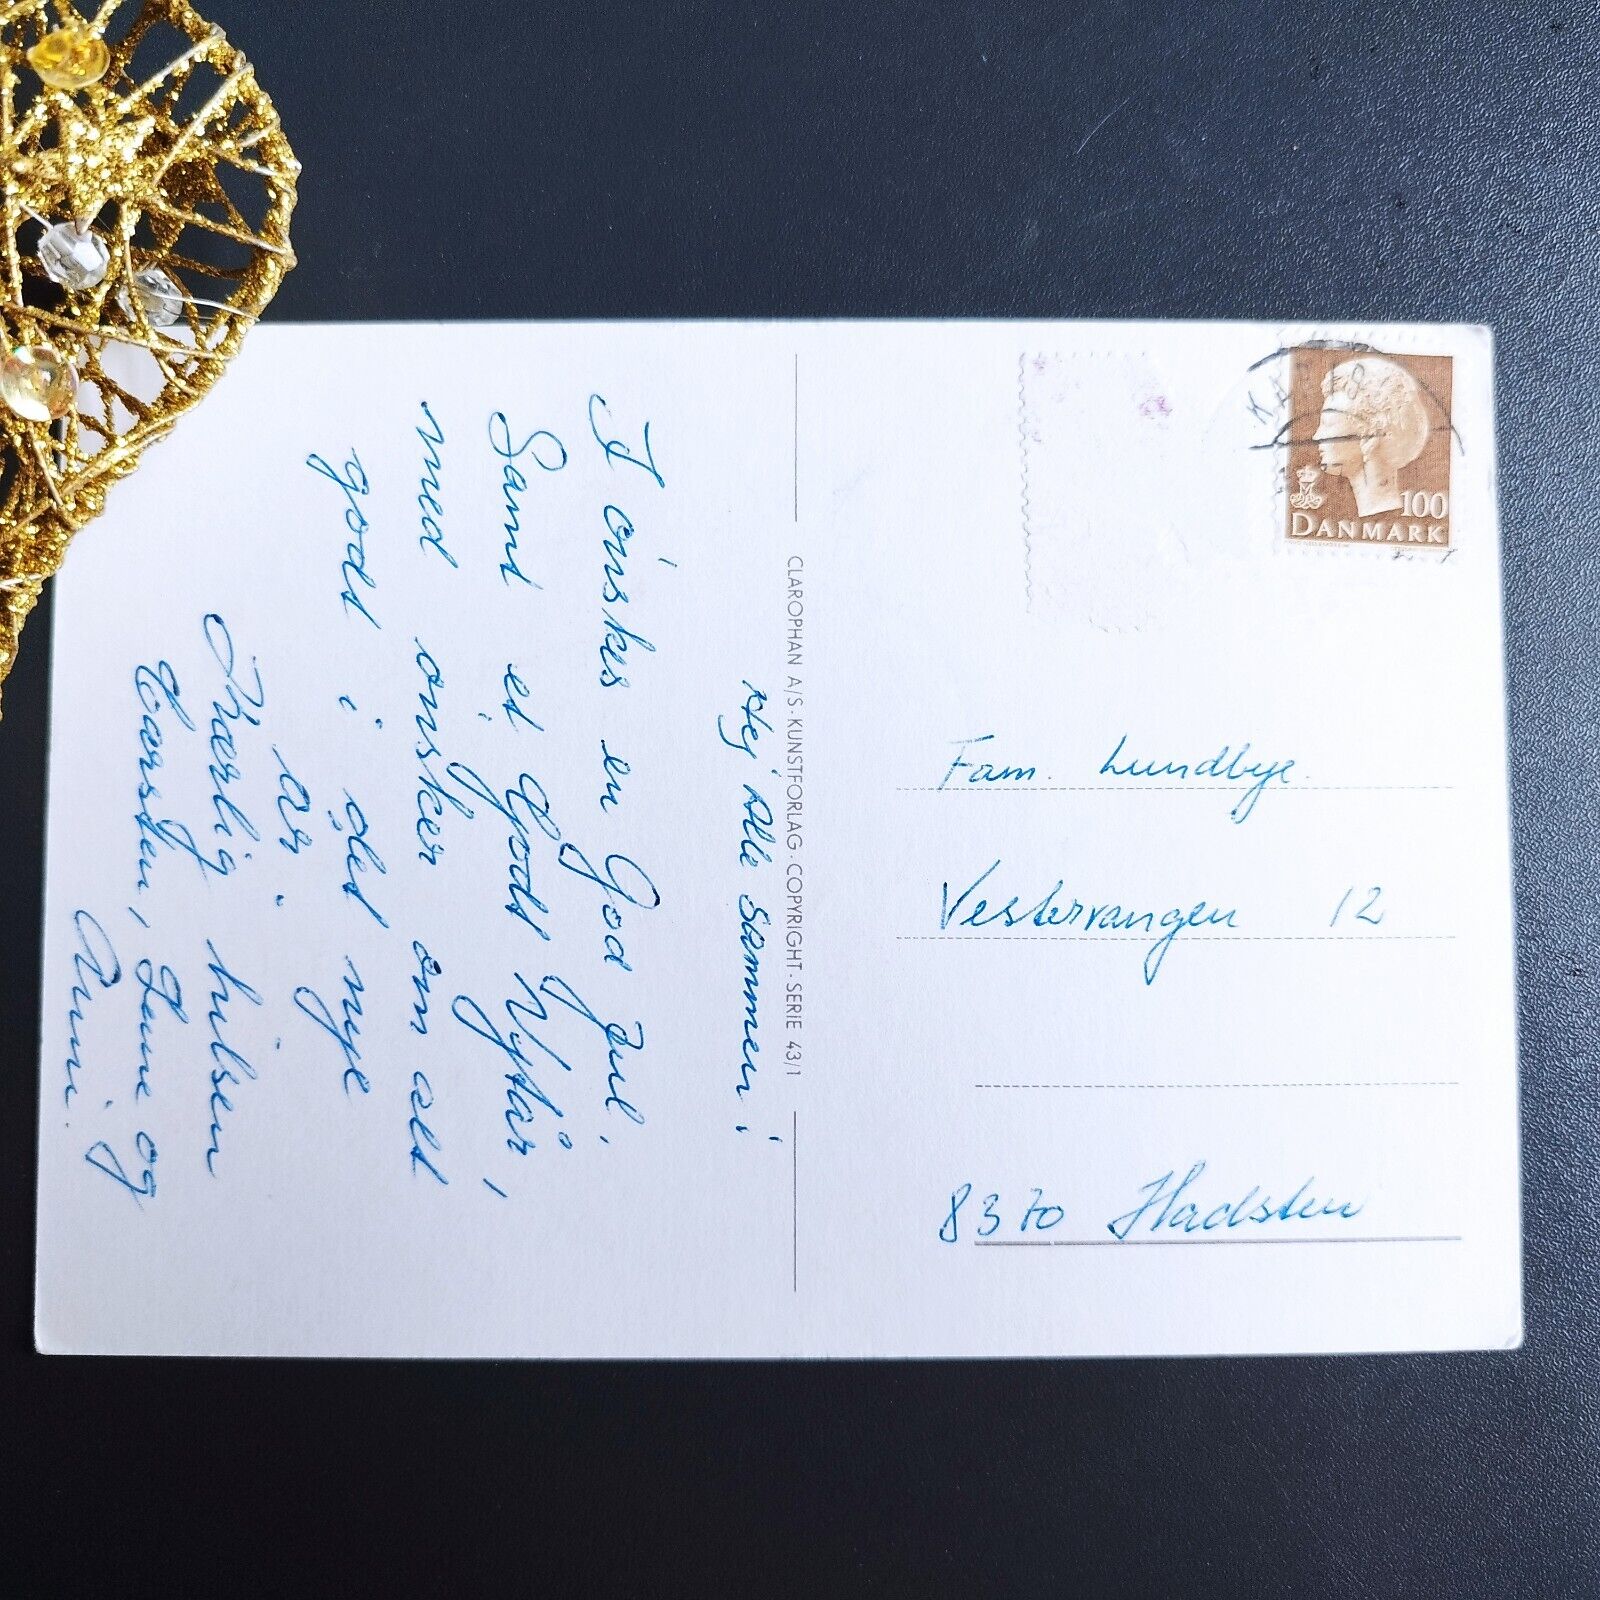 Hej Alle Sammen!
I önskes en God Jul.
Samt et Godt Nytår,
med onsker om alt
godt i det nye
år.
Kærlig hilsen
Carsten, Lene og
Anni.
CLAROPHAN A/S · KUNSTFORLAG · COPYRIGHT · SERIE 43/1
100
DANMARK
Fam. Lundbye.
Vestervangen 12
8370 Hadsten